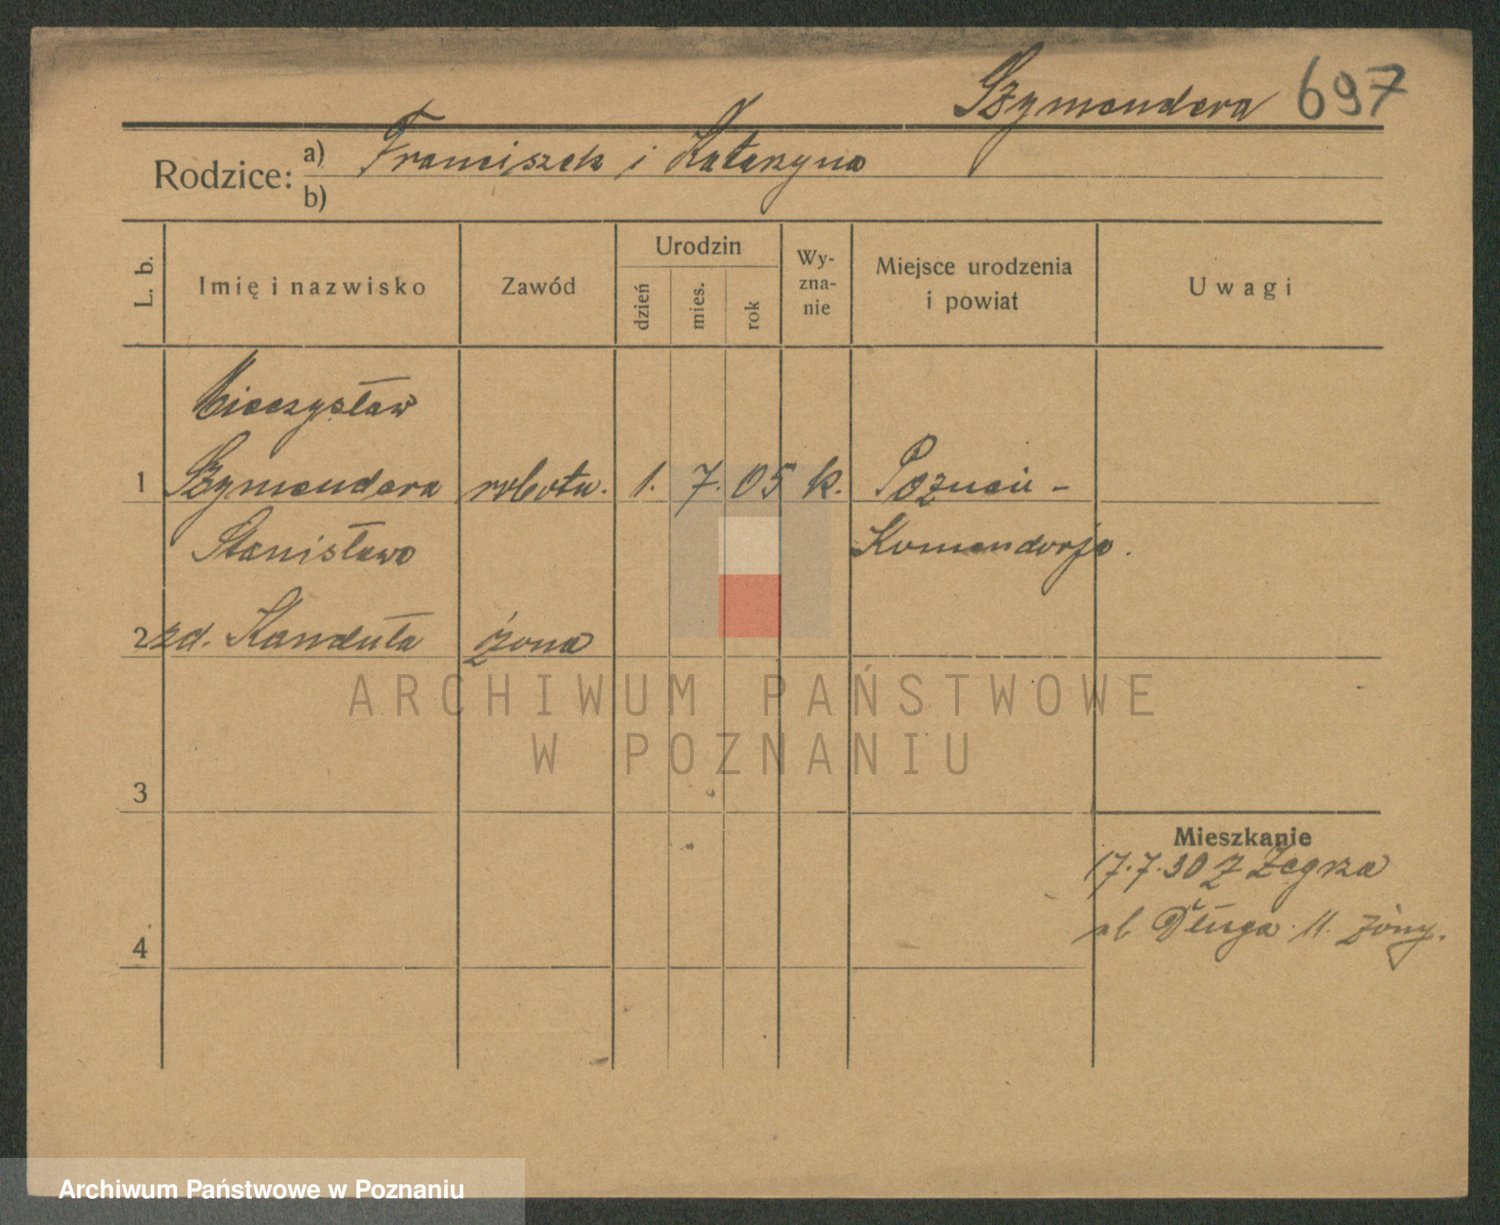 Szymendera 697
Rodzice: a) Franciszek i Katarzyna
b)
L. b. Imię i nazwisko Zawód Urodzin dzień mies. rok Wy-zna-nie Miejsce urodzenia i powiat Uwagi
Mieczysław
1 Szymendera robotn. 1. 7. 05 k. Poznań -
Stanisława Komandorja.
2 zd. Kanduła żona
ARCHIWUM PAŃSTWOWE
W POZNANIU
3
Mieszkanie
17.7.30 z Żegrza
ul Długa 11. żony.
4
Archiwum Państwowe w Poznaniu